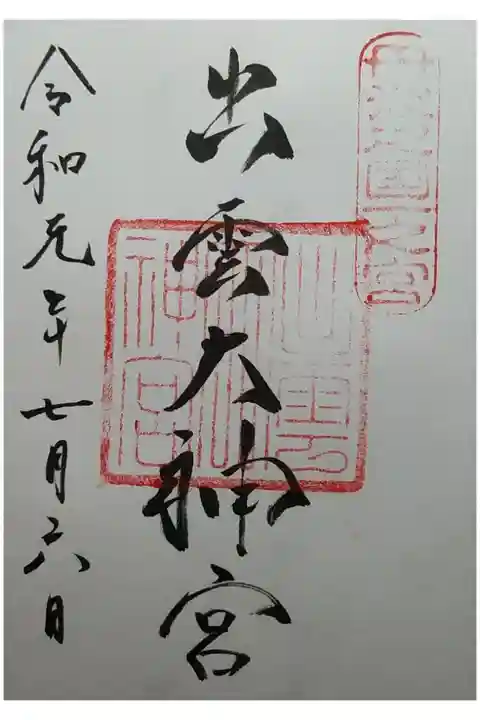 丹波國一之宮
出雲大神宮
出雲大神宮
令和元年七月六日